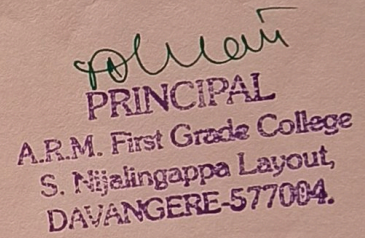 PRINCIPAL
A.R.M. First Grade College
S. Nijalingappa Layout,
DAVANGERE-577004.